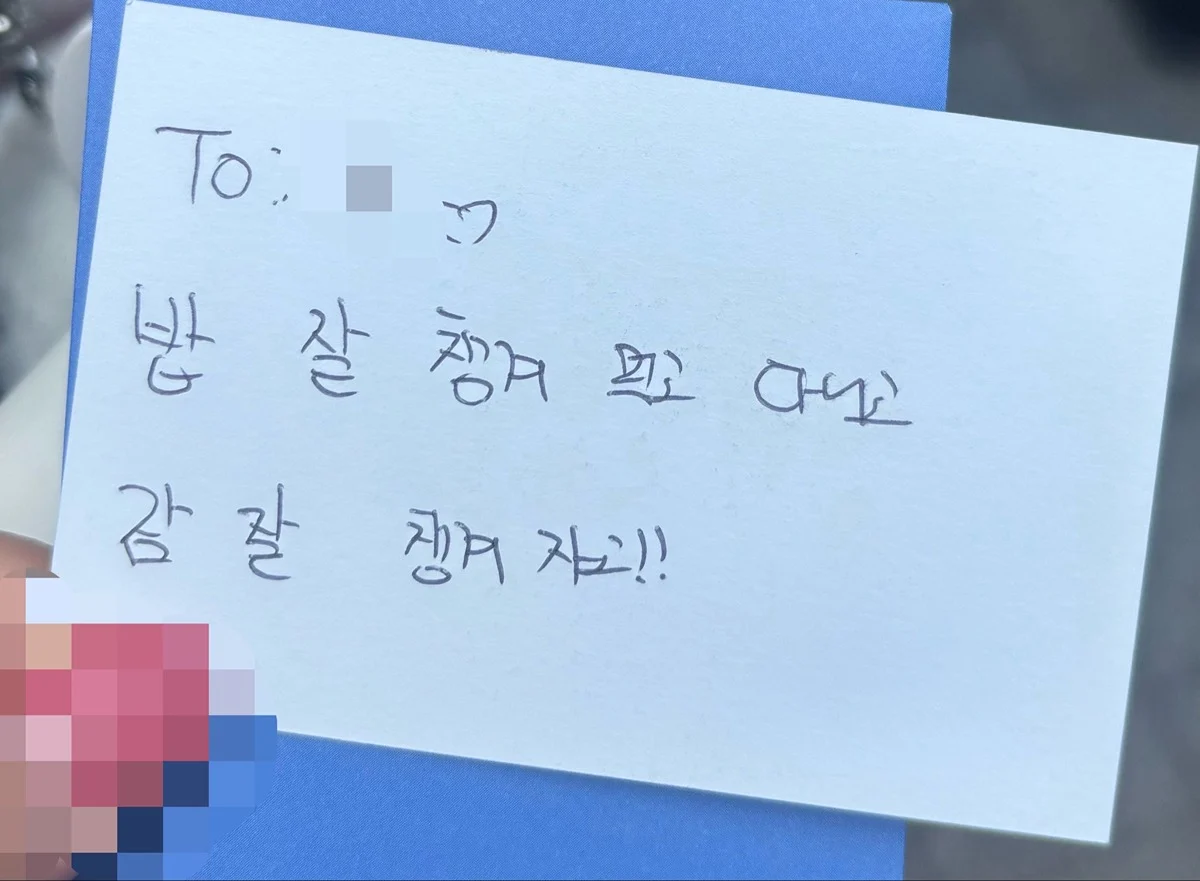 To: ♡
밥 잘 챙겨 먹고 다니고
잠 잘 챙겨 자고!!